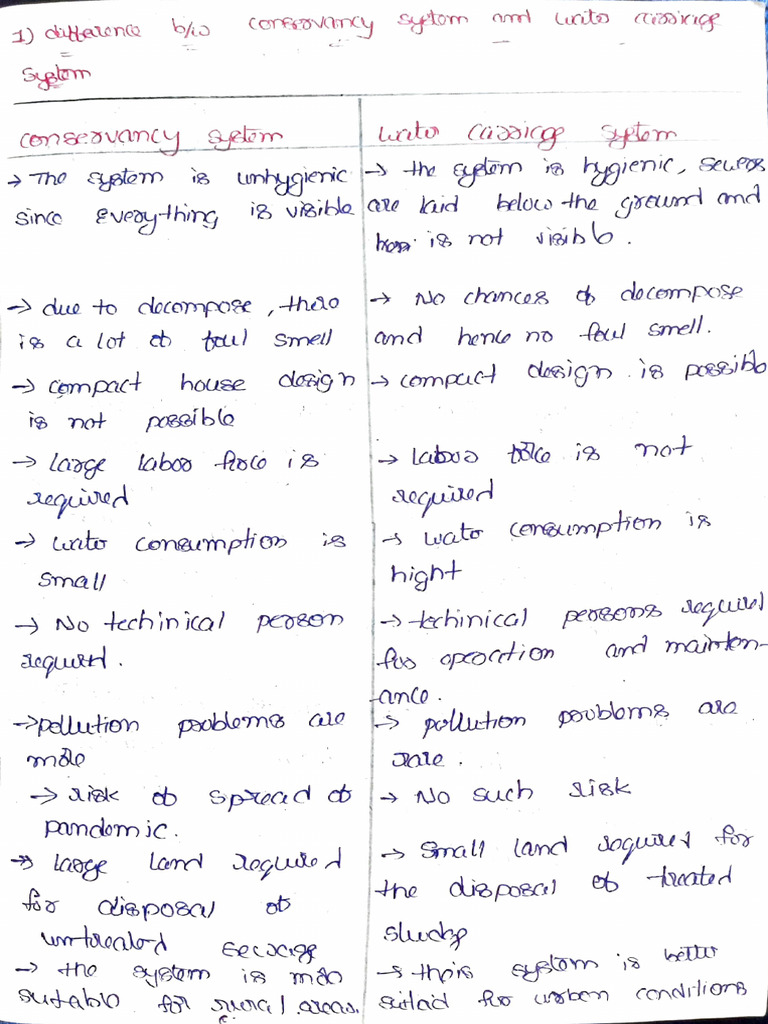 1) difference b/w conservancy system and water carriage
system
conservancy system
→ The system is unhygienic
since everything is visible
→ due to decompose, there
is a lot of foul smell
→ compact house design
is not possible
→ large labor force is
required
→ water consumption is
small
→ No techinical person
required.
→ pollution problems are
more
→ risk of spread of
pandemic.
→ large land required
for disposal of
untreated sewage
→ the system is more
suitable for rural areas.
water carriage system
→ the system is hygienic, sewers
are laid below the ground and
is not visible.
→ No chances of decompose
and hence no foul smell.
→ compact design is possible
→ labour force is not
required
→ water consumption is
hight
→ techinical persons required
for operation and mainten-
ance.
→ pollution problems are
rare.
→ No such risk
→ Small land required for
the disposal of treated
sludge
→ this system is better
suitaid for urban conditions